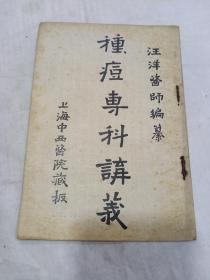 汪洋醫師編纂
種痘專科講義
上海中西醫院藏板